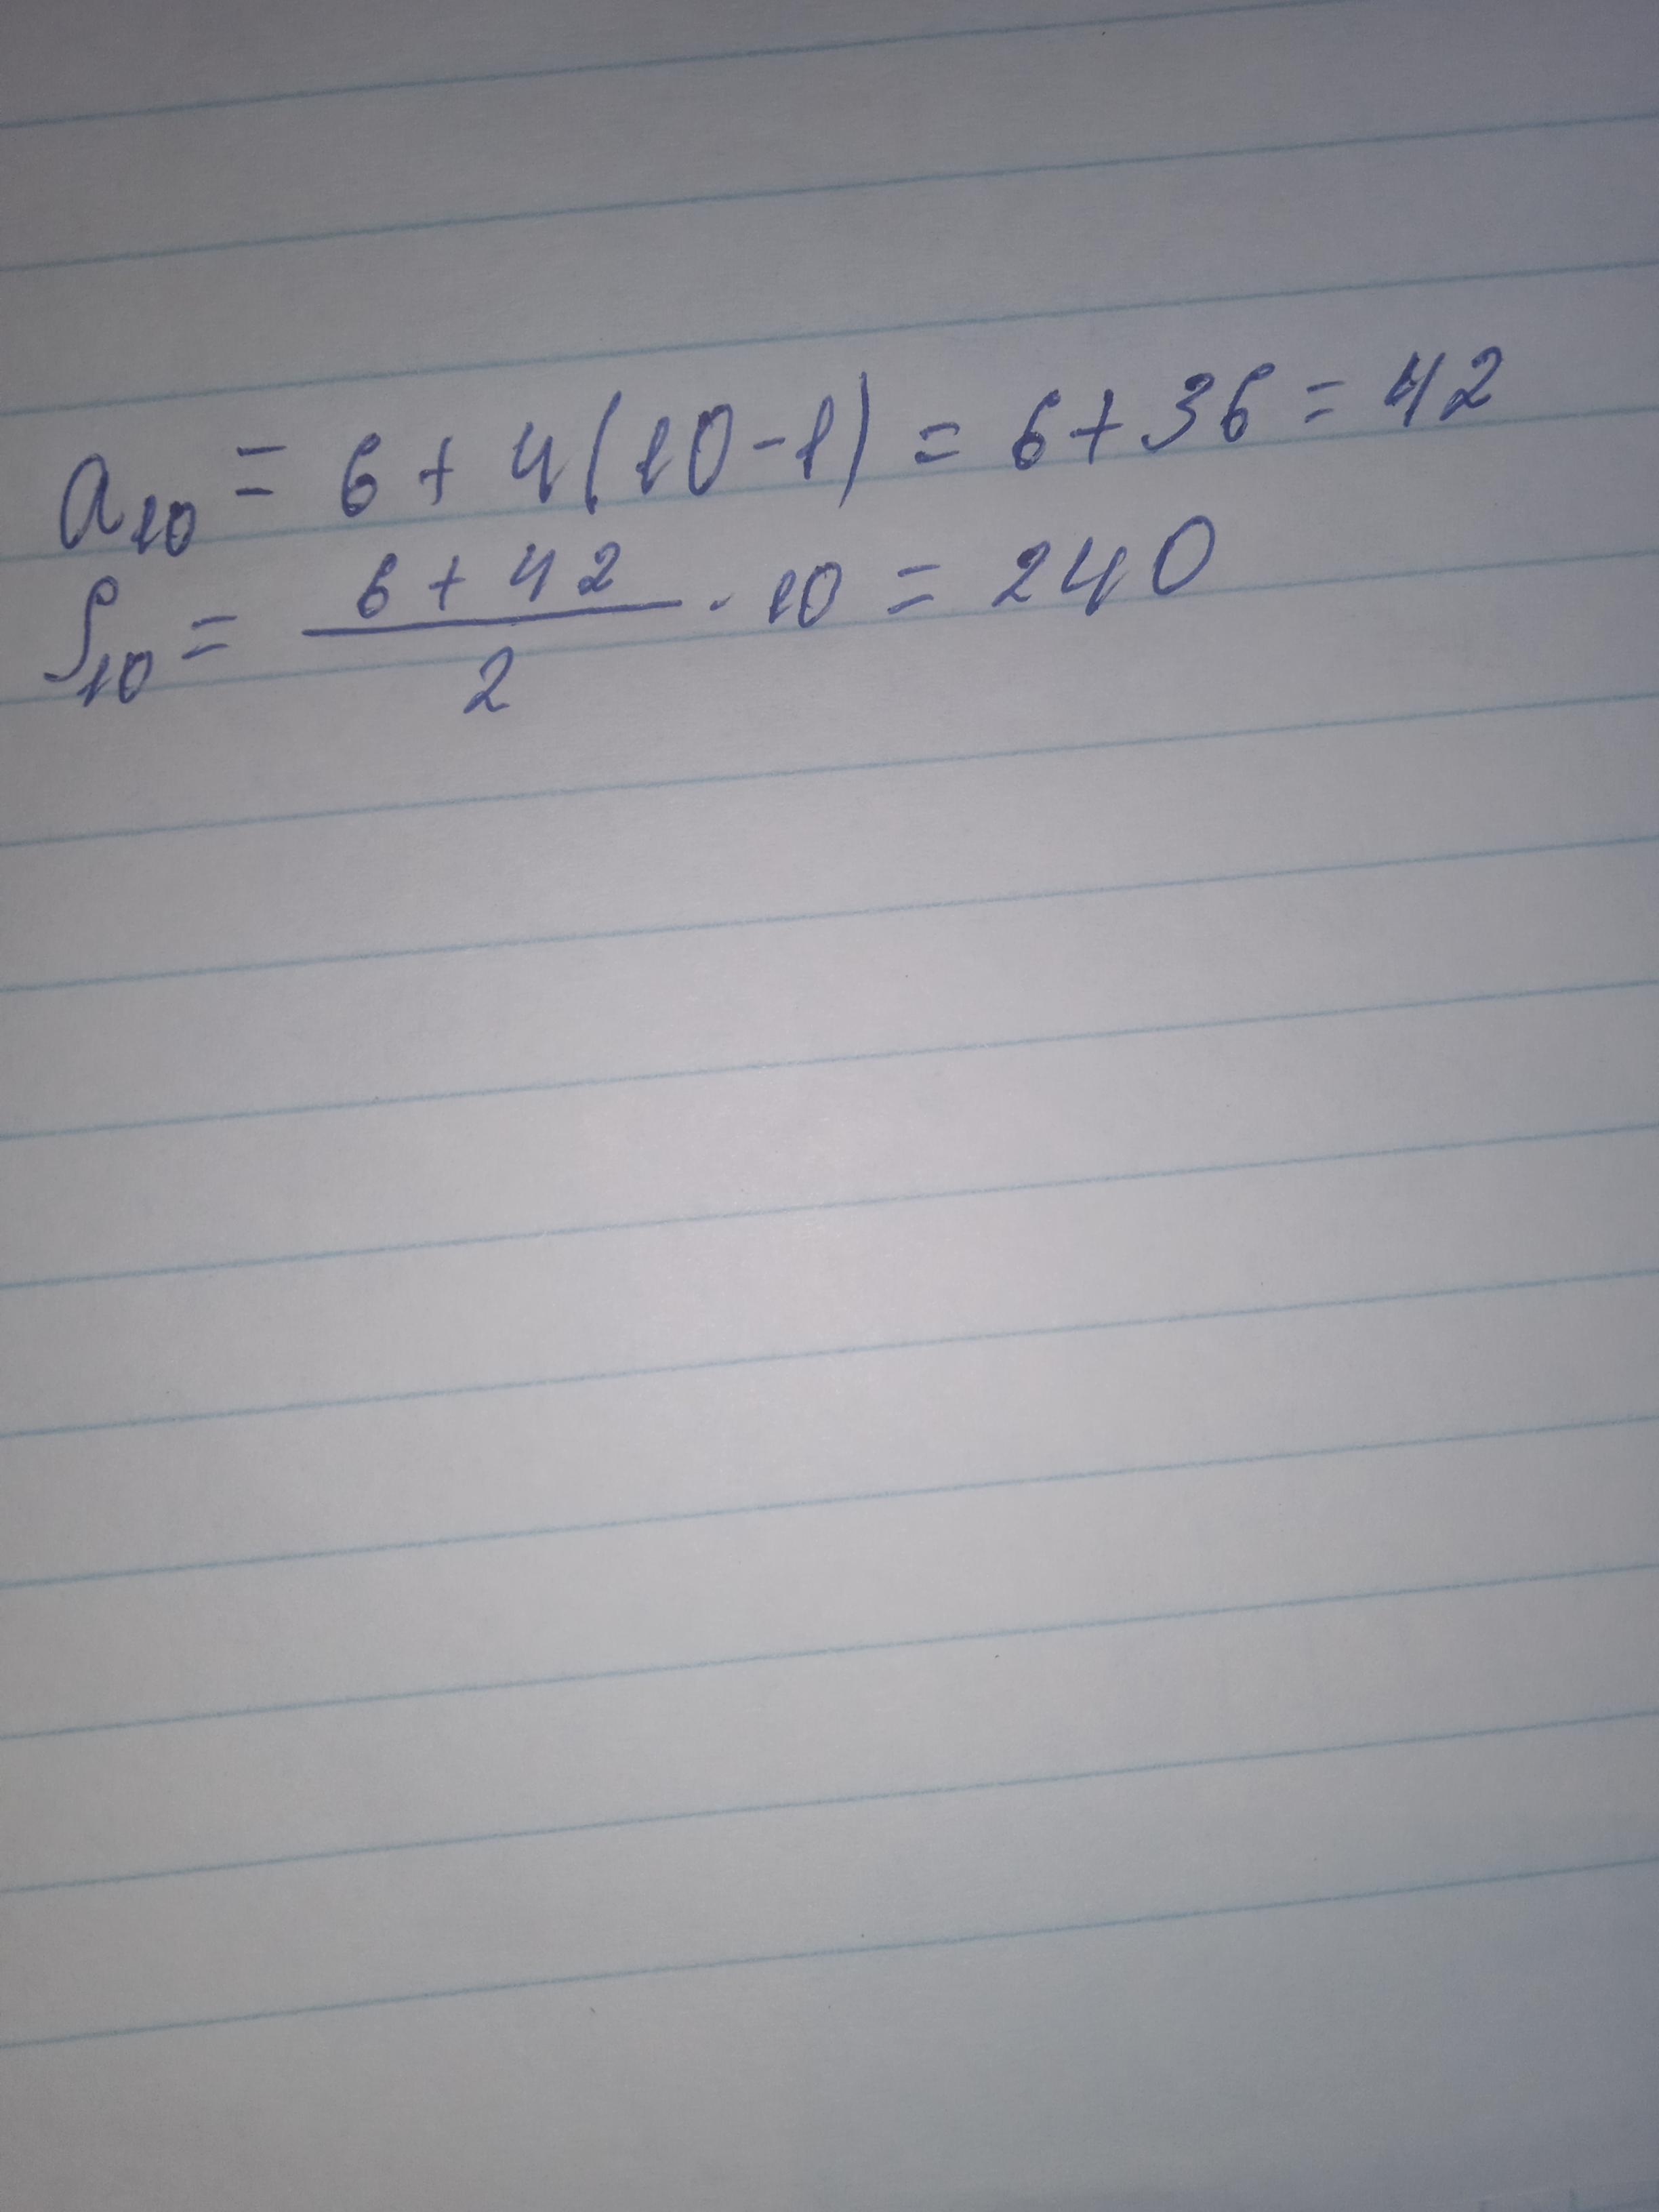 a₁₀ = 6 + 4(10-1) = 6+36 = 42
S₁₀ = (6 + 42)/2 · 10 = 240